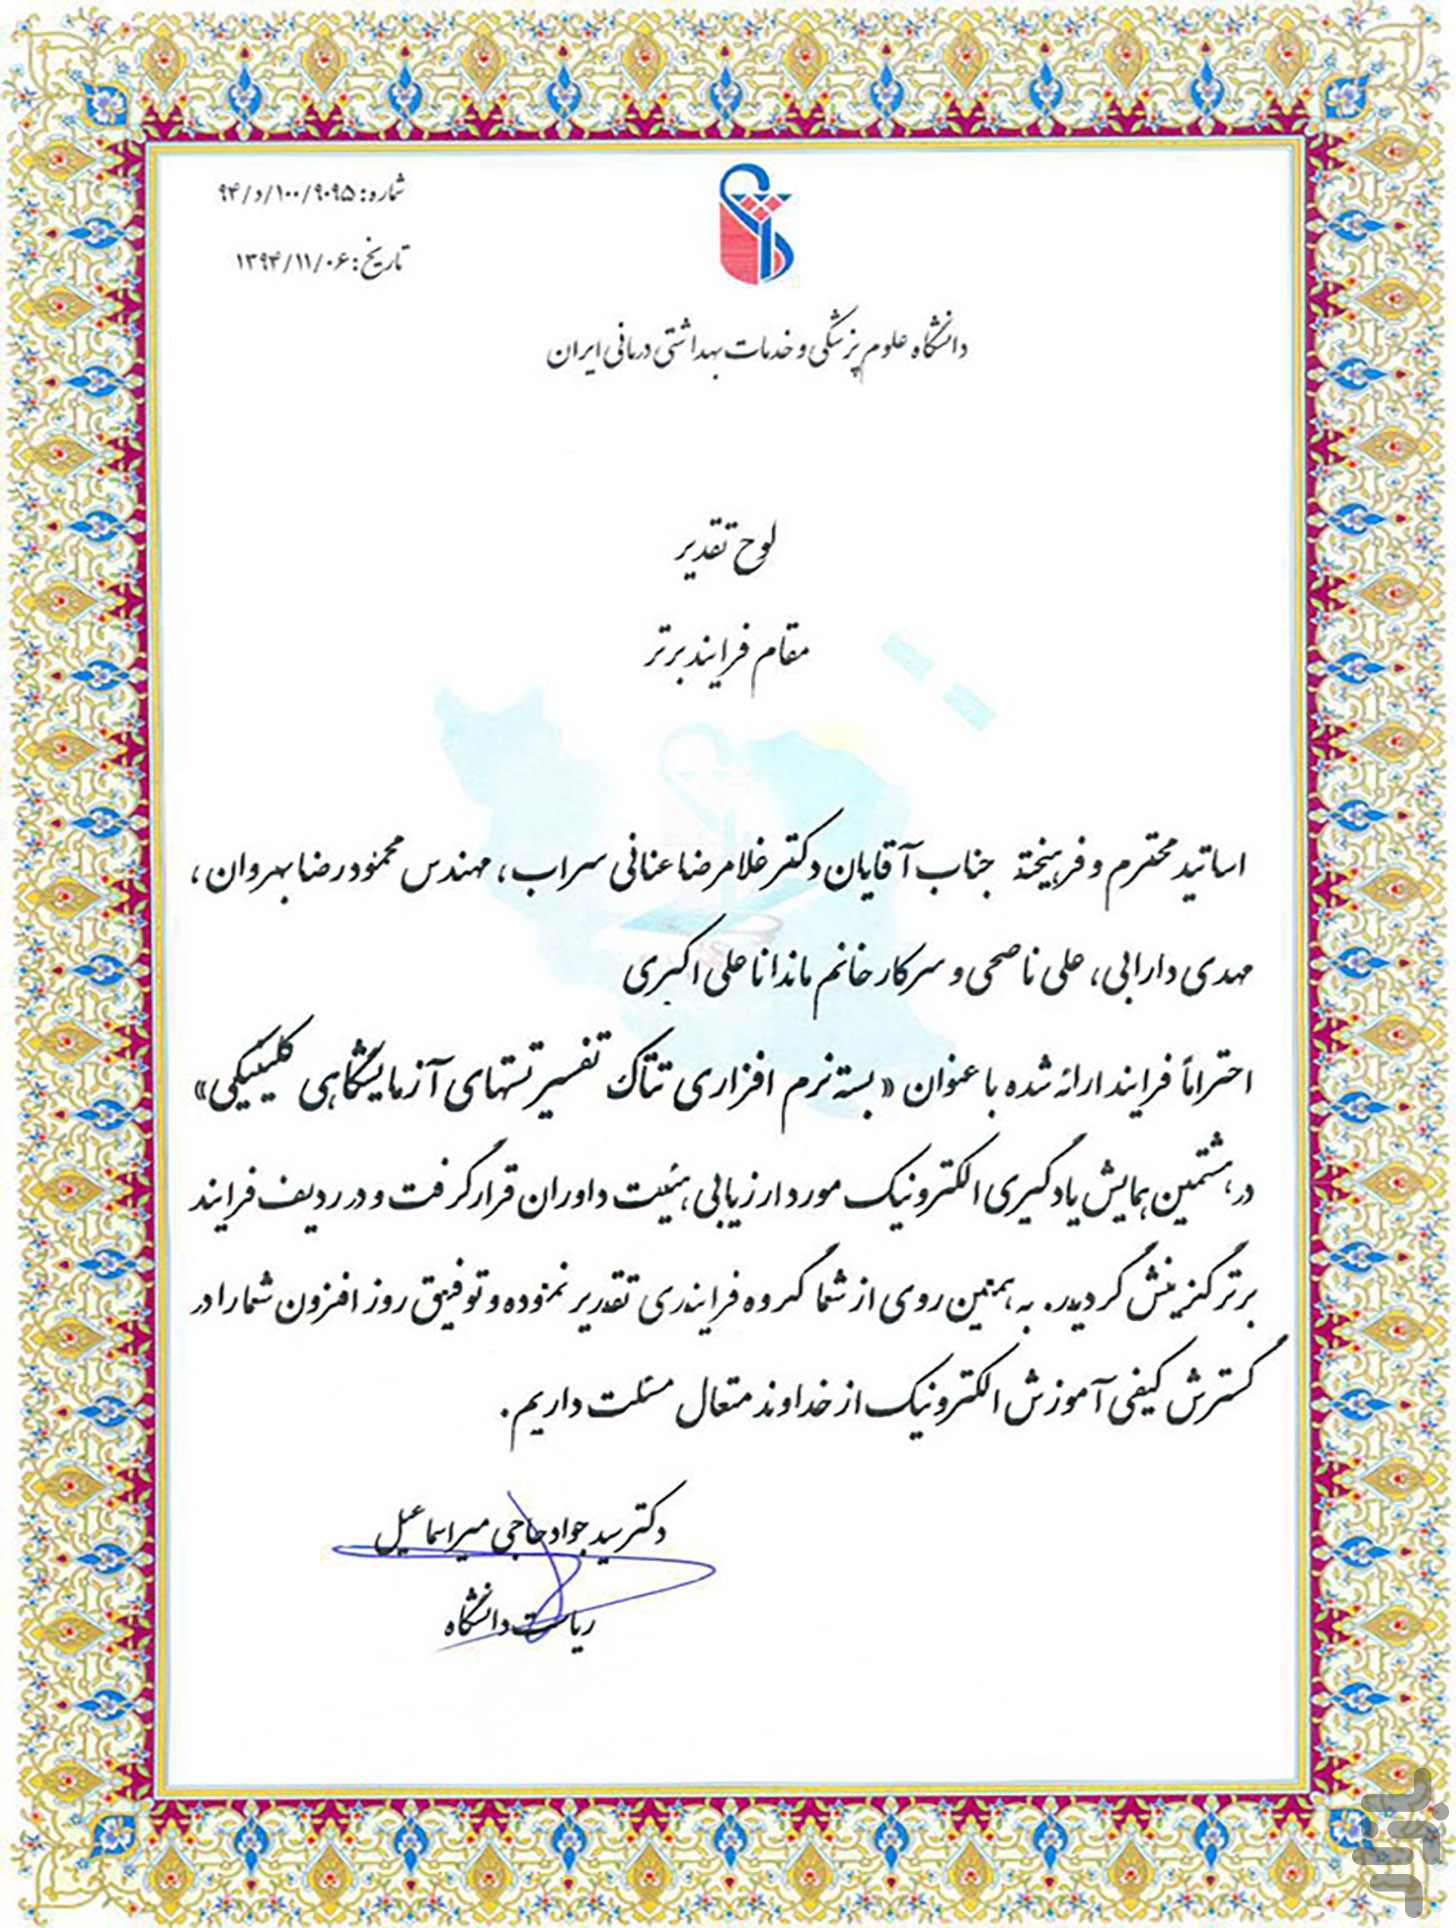 شماره: ۹۴/د/۱۰۰/۹۰۹۵
تاریخ: ۱۳۹۴/۱۱/۰۶
دانشگاه علوم پزشکی و خدمات بهداشتی درمانی ایران
لوح تقدیر
مقام فرایند برتر
اساتید محترم و فرهیخته جناب آقایان دکتر غلامرضا عنانی سراب، مهندس محمود رضا بهروان،
مهدی دارابی، علی ناصحی و سرکار خانم ماندانا علی اکبری
احتراماً فرایند ارائه شده با عنوان «بسته نرم افزاری تتاک تفسیر تستهای آزمایشگاهی کلینیکی»
در هشتمین همایش یادگیری الکترونیک مورد ارزیابی هیئت داوران قرار گرفت و در ردیف فرایند
برتر گزینش گردید. به همین روی از شما گروه فرایندی تقدیر نموده و توفیق روز افزون شما را در
گسترش کیفی آموزش الکترونیک از خداوند متعال مسئلت داریم.
دکتر سید جواد حاجی میراسماعیل
ریاست دانشگاه
بازار